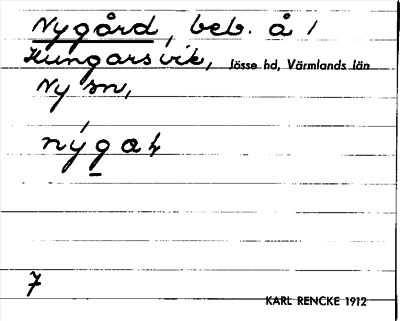 Nygård, beb. å /
Kungarsvik, Jösse hd, Värmlands län
Ny sn,
nýga
7
KARL RENCKE 1912